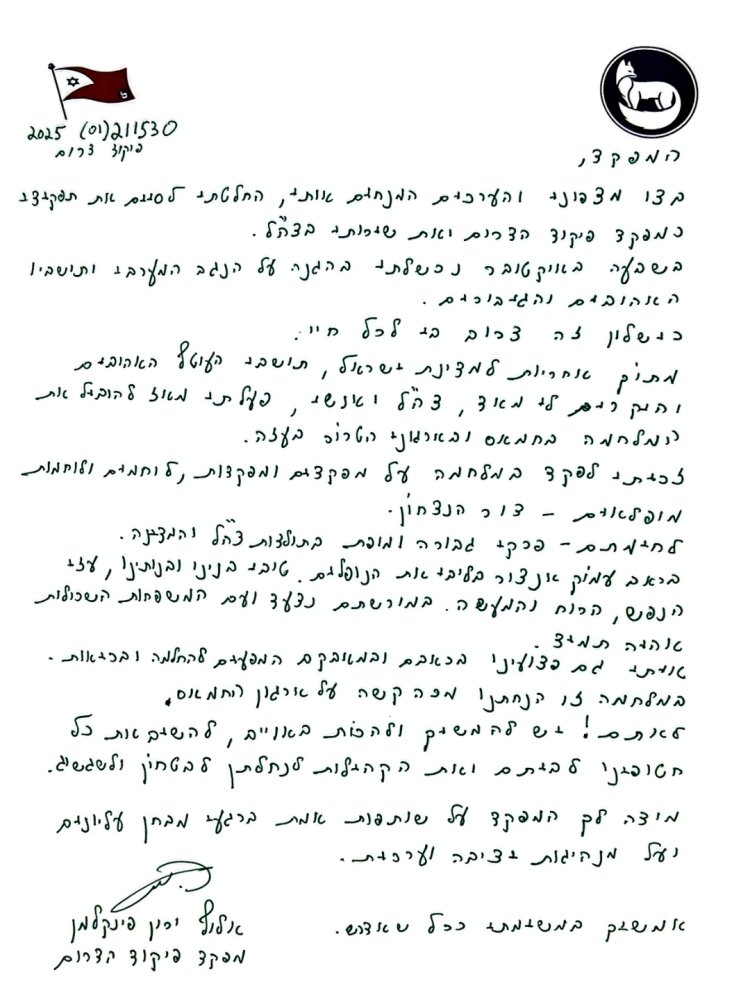 211530 (01) 2025
פיקוד דרום
המפקד,
בצו מצפוני והערכים המנחים אותי, החלטתי לסיים את תפקידי
כמפקד פיקוד הדרום ואת שירותי בצה״ל.
בשבעה באוקטובר נכשלתי בהגנה על הנגב המערבי ותושביו
האהובים והגיבורים.
כישלון זה צרוב בי לכל חיי.
מתוך אחריות למדינת ישראל, תושבי העוטף האהובים
והיקרים לי מאד, צה״ל ואנשיו, פעלתי מאז להוביל את
המלחמה בחמאס ובארגוני הטרור בעזה.
זכיתי לפקד במלחמה על מפקדים ומפקדות, לוחמים ולוחמות
מופלאים – דור הנצחון.
לחימתם – פרקי גבורה ומופת בתולדות צה״ל והמדינה.
בכאב עמוק אנצור בליבי את הנופלים. טובי בנינו ובנותינו, עזי
הנפש, הרוח והמעשה. במורשתם נצעד ועם המשפחות השכולות
אהיה תמיד.
איתי גם פצועיני בכאבם ובמאבקם המפעים להחלמה ובריאות.
במלחמה זו הנחתנו מכה קשה על ארגון החמאס.
לא תם! יש להמשיך ולהכות באוייב, להשיב את כל
חטופינו לבתים ואת הקהילות לנחלתן לבטחון ולשגשוג.
מודה לך המפקד על שותפות אמת ברגעי מבחן עליונים
ועל מנהיגות יציבה וערכית.
אמשיך במשימתי ככל שאדרש.
אלוף ירון פינקלמן
מפקד פיקוד הדרום